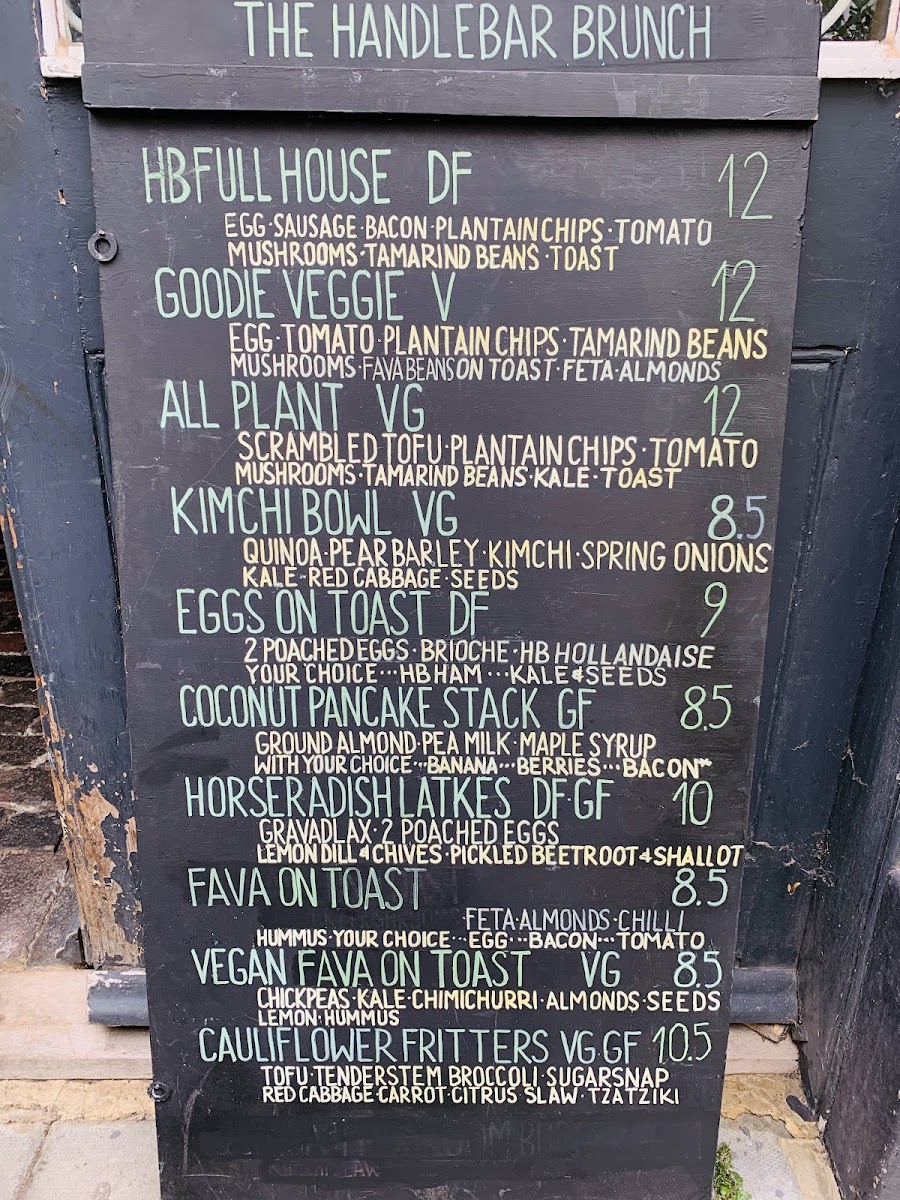 THE HANDLEBAR BRUNCH
HB FULL HOUSE DF 12
EGG·SAUSAGE·BACON·PLANTAIN CHIPS·TOMATO
MUSHROOMS·TAMARIND BEANS·TOAST
GOODIE VEGGIE V 12
EGG·TOMATO·PLANTAIN CHIPS·TAMARIND BEANS
MUSHROOMS·FAVA BEANS ON TOAST·FETA·ALMONDS
ALL PLANT VG 12
SCRAMBLED TOFU·PLANTAIN CHIPS·TOMATO
MUSHROOMS·TAMARIND BEANS·KALE·TOAST
KIMCHI BOWL VG 8.5
QUINOA·PEAR BARLEY·KIMCHI·SPRING ONIONS
KALE·RED CABBAGE·SEEDS
EGGS ON TOAST DF 9
2 POACHED EGGS·BRIOCHE·HB HOLLANDAISE
YOUR CHOICE···HB HAM···KALE & SEEDS
COCONUT PANCAKE STACK GF 8.5
GROUND ALMOND·PEA MILK·MAPLE SYRUP
WITH YOUR CHOICE···BANANA···BERRIES···BACON···
HORSERADISH LATKES DF·GF 10
GRAVADLAX·2 POACHED EGGS
LEMON DILL & CHIVES·PICKLED BEETROOT & SHALLOT
FAVA ON TOAST 8.5
FETA·ALMONDS·CHILLI
HUMMUS·YOUR CHOICE···EGG···BACON···TOMATO
VEGAN FAVA ON TOAST VG 8.5
CHICKPEAS·KALE·CHIMICHURRI·ALMONDS·SEEDS
LEMON·HUMMUS
CAULIFLOWER FRITTERS VG.GF 10.5
TOFU·TENDERSTEM BROCCOLI·SUGARSNAP
RED CABBAGE·CARROT·CITRUS SLAW·TZATZIKI